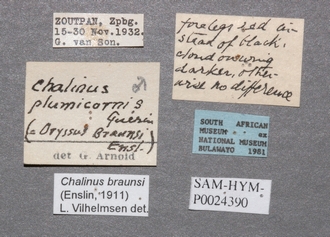 ZOUTPAN, Zpbg.
15-30 Nov. 1932.
G. van Son.
forelegs red in-
stead of black,
cloud on wing
darker, other-
wise no difference
Chalinus ♂
plumicornis
Guerin
(= Oryssus Braunsi
Ensl.)
det G. Arnold
SOUTH AFRICAN
MUSEUM ex
NATIONAL MUSEUM
BULAWAYO 1981
Chalinus braunsi
(Enslin, 1911)
L. Vilhelmsen det.
SAM-HYM-
P0024390